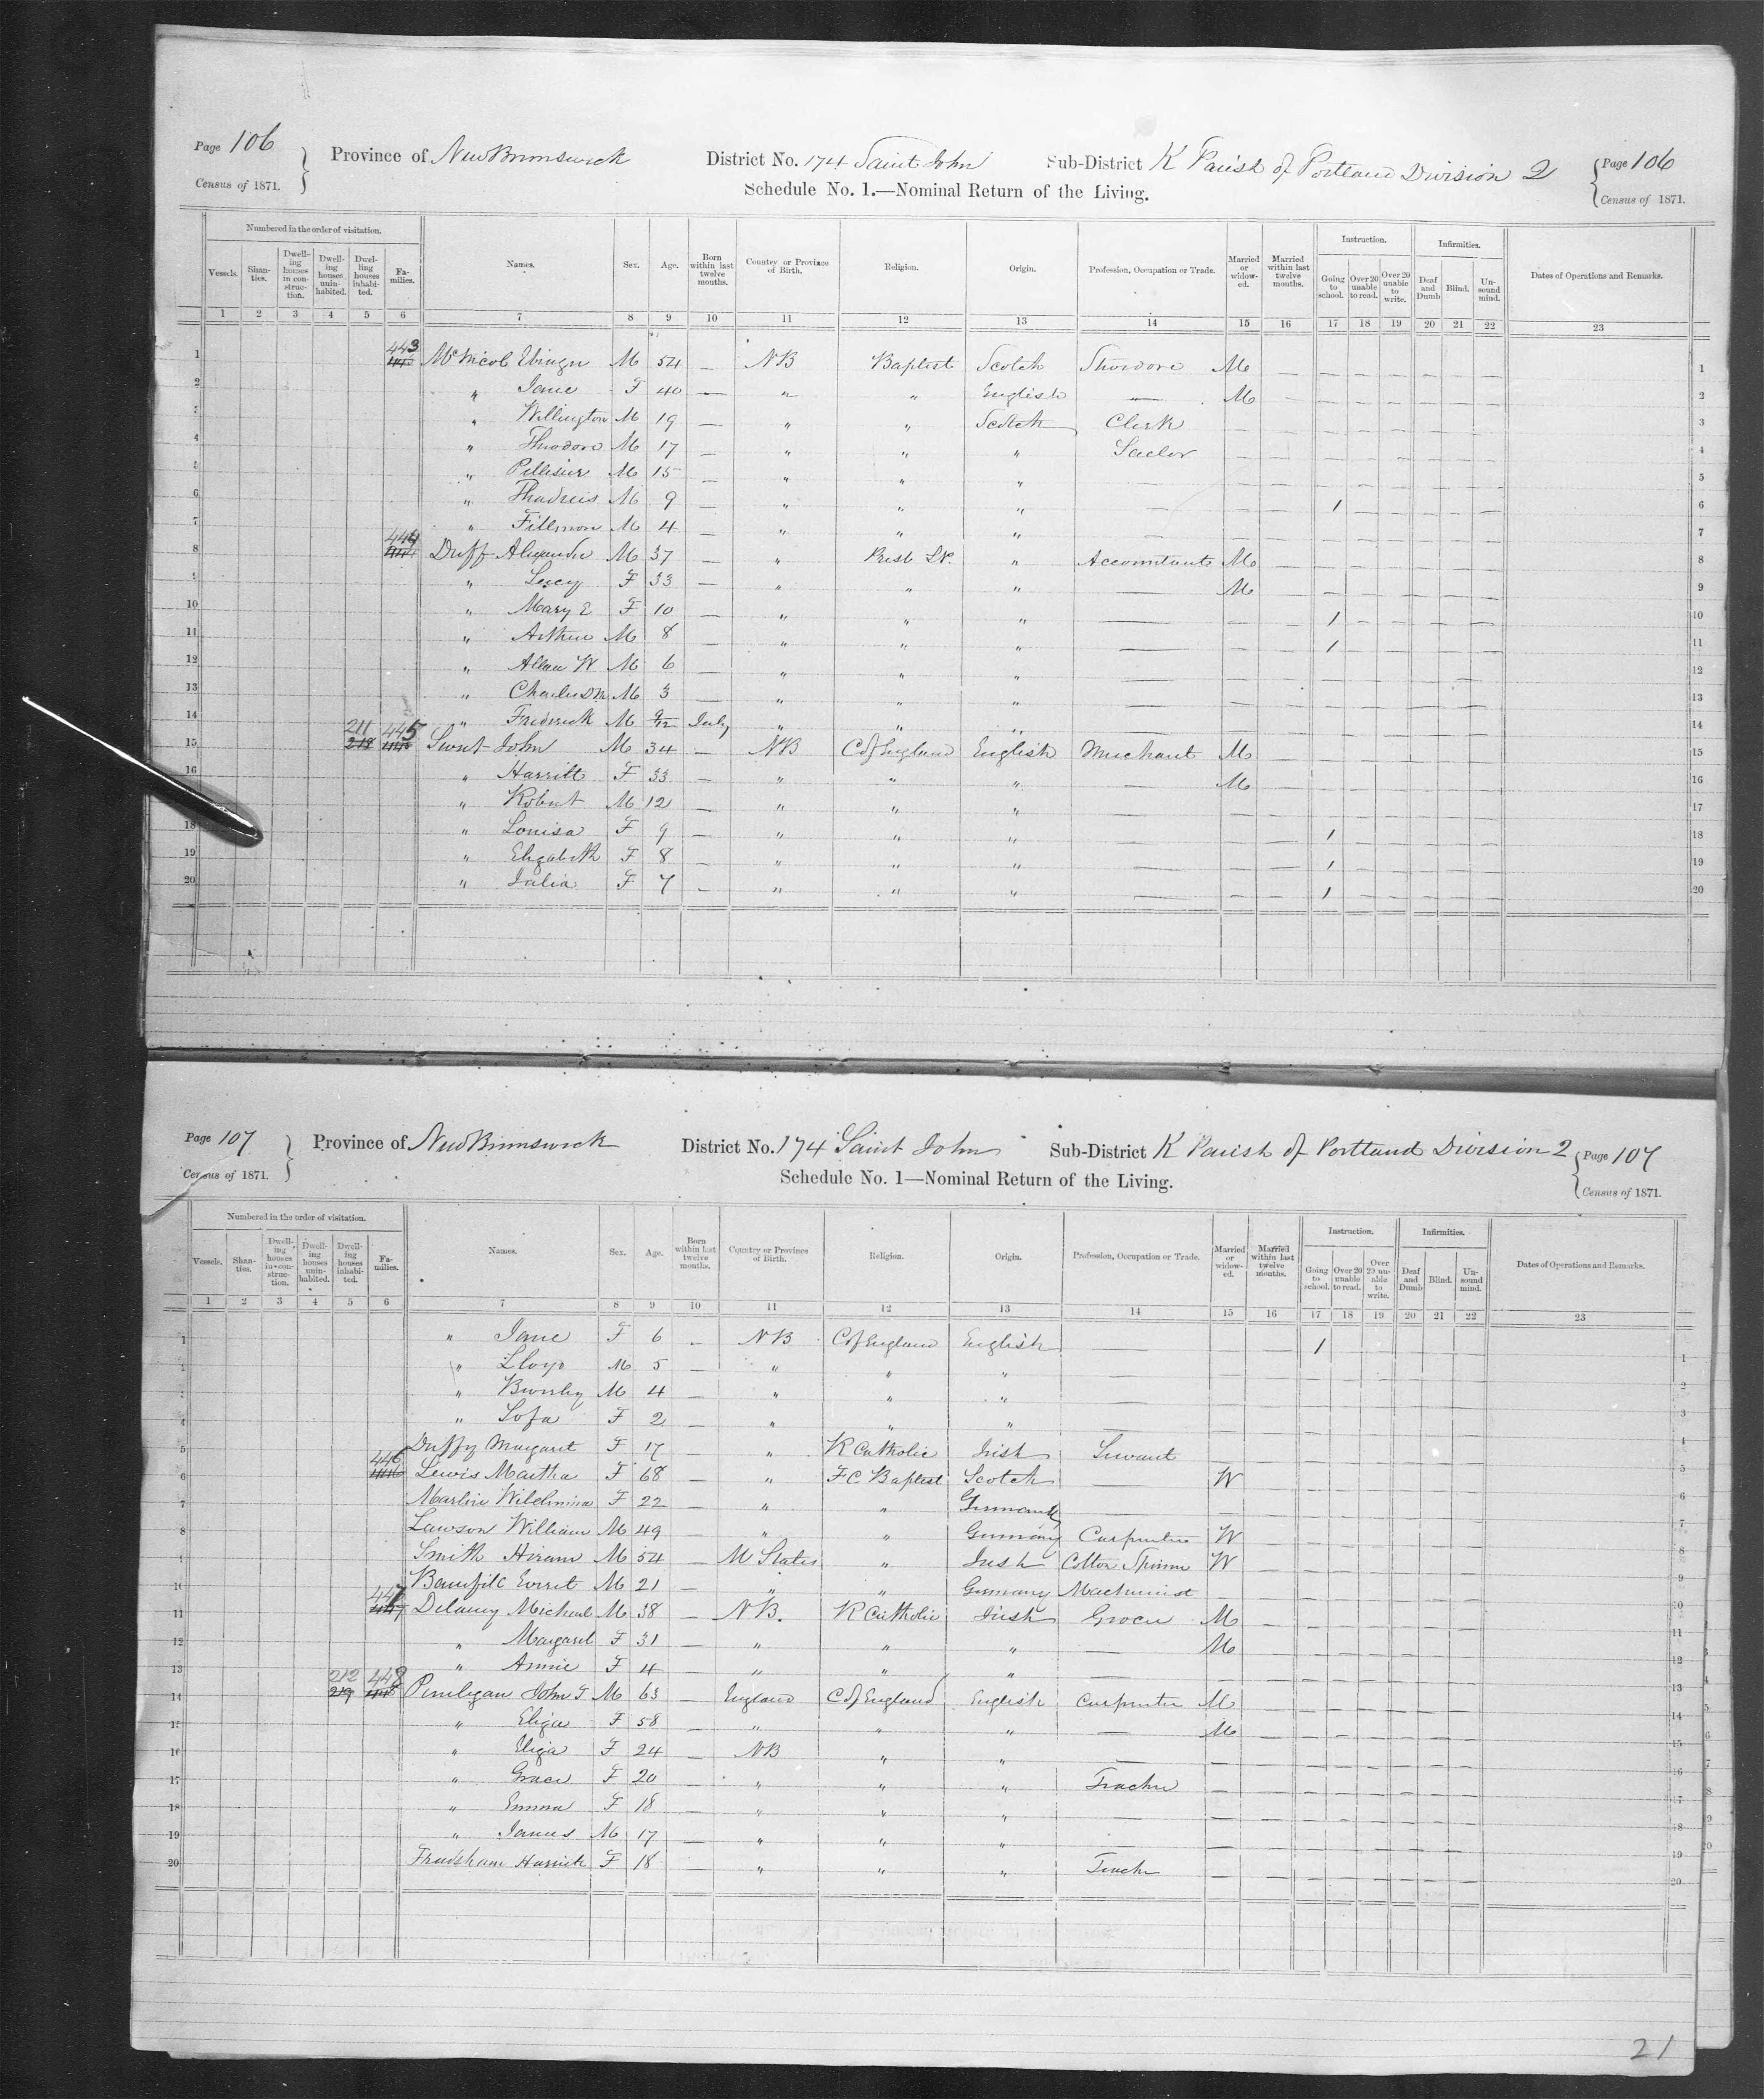 Page 106 Province of New Brunswick District No. 174 Saint John Sub-District K Parish of Portland Division 2 Page 106
Census of 1871. Schedule No. 1.—Nominal Return of the Living. Census of 1871.
Numbered in the order of visitation. Instruction. Infirmities.
Vessels. Shanties. Dwelling houses in construction. Dwelling houses uninhabited. Dwelling houses inhabited. Families. Names. Sex. Age. Born within last twelve months. Country or Province of Birth. Religion. Origin. Profession, Occupation or Trade. Married or widowed. Married within last twelve months. Going to school. Over 20 unable to read. Over 20 unable to write. Deaf and Dumb Blind. Unsound mind. Dates of Operations and Remarks.
1 2 3 4 5 6 7 8 9 10 11 12 13 14 15 16 17 18 19 20 21 22 23
1 443 McNicol M 54 — NB Baptist Scotch M — — — — — — — 1
2 " Jane F 40 — " " English — M — — — — — — — 2
3 " Willington M 19 — " " Scotch Clerk — — — — — — — — 3
4 " Theodore M 17 — " " " Sailor — — — — — — — — 4
5 " M 15 — " " " — — — — — — — — — 5
6 " M 9 — " " " — — — 1 — — — — — 6
7 " Fillmore M 4 — " " " — — — — — — — — — 7
8 444 Duff Alexander M 37 — " " Accountant M — — — — — — — 8
9 " Lucy F 33 — " " " — M — — — — — — — 9
10 " Mary E F 10 — " " " — — — 1 — — — — — 10
11 " Arthur M 8 — " " " — — — 1 — — — — — 11
12 " Allan W M 6 — " " " — — — — — — — — — 12
13 " Charles M 3 — " " " — — — — — — — — — 13
14 " Fredrick M 9/12 July " " " — — — — — — — — — 14
15 211 218 445 John M 34 — NB C of England English Merchant M — — — — — — — 15
16 " Harriett F 33 — " " " — M — — — — — — — 16
" Robert M 12 — " " " — — — — — — — — — 17
18 " Louisa F 9 — " " " — — — 1 — — — — — 18
19 " Elizabeth F 8 — " " " — — — 1 — — — — — 19
20 " Julia F 7 — " " " — — — 1 — — — — — 20
Page 107 Province of New Brunswick District No. 174 Saint John Sub-District K Parish of Portland Division 2 Page 107
Census of 1871. Schedule No. 1—Nominal Return of the Living. Census of 1871.
Numbered in the order of visitation. Instruction. Infirmities.
Vessels. Shanties. Dwelling houses in construction. Dwelling houses uninhabited. Dwelling houses inhabited. Families. Names. Sex. Age. Born within last twelve months. Country or Province of Birth. Religion. Origin. Profession, Occupation or Trade. Married or widowed. Married within last twelve months. Going to school. Over 20 unable to read. Over 20 unable to write. Deaf and Dumb Blind. Unsound mind. Dates of Operations and Remarks.
1 2 3 4 5 6 7 8 9 10 11 12 13 14 15 16 17 18 19 20 21 22 23
1 " Jane F 6 — NB C of England English — — — 1 — — — — — 1
2 " Lloyd M 5 — " " " — — — — — — — — — 2
" M 4 — " " " — — — — — — — — — 3
4 " F 2 — " " " — — — — — — — — — 4
5 Duffy Margaret F 17 — " R Catholic Irish Servant — — — — — — — — 5
6 446 Lewis Martha F 68 — " F C Baptist Scotch — W — — — — — — — 6
7 Wilelmina F 22 — " " — — — — — — — — — 7
8 Lawson William M 49 — " " Germany Carpenter W — — — — — — — 8
9 Smith Hiram M 54 — " Irish Cotton W — — — — — — — 9
10 M 21 — " " Germany Machinist — — — — — — — 10
11 447 Delaney Micheal M 38 — NB. R Catholic Irish Grocer M — — — — — — — 11
12 " Margaret F 31 — " " " — M — — — — — — — 12
13 " Annie F 4 — " " " — — — — — — — — — 13
14 212 219 448 John M 63 — England C of England English Carpenter M — — — — — — — 14
15 " Eliza F 58 — " " " — M — — — — — — — 15
16 " Eliza F 24 — NB " " — — — — — — — — — 16
17 " Grace F 20 — " " " Teacher — — — — — — — — 17
18 " Emma F 18 — " " " — — — — — — — — — 18
19 " James M 17 — " " " — — — — — — — — — 19
20 F 18 — " " " — — — — — — — — 20
21